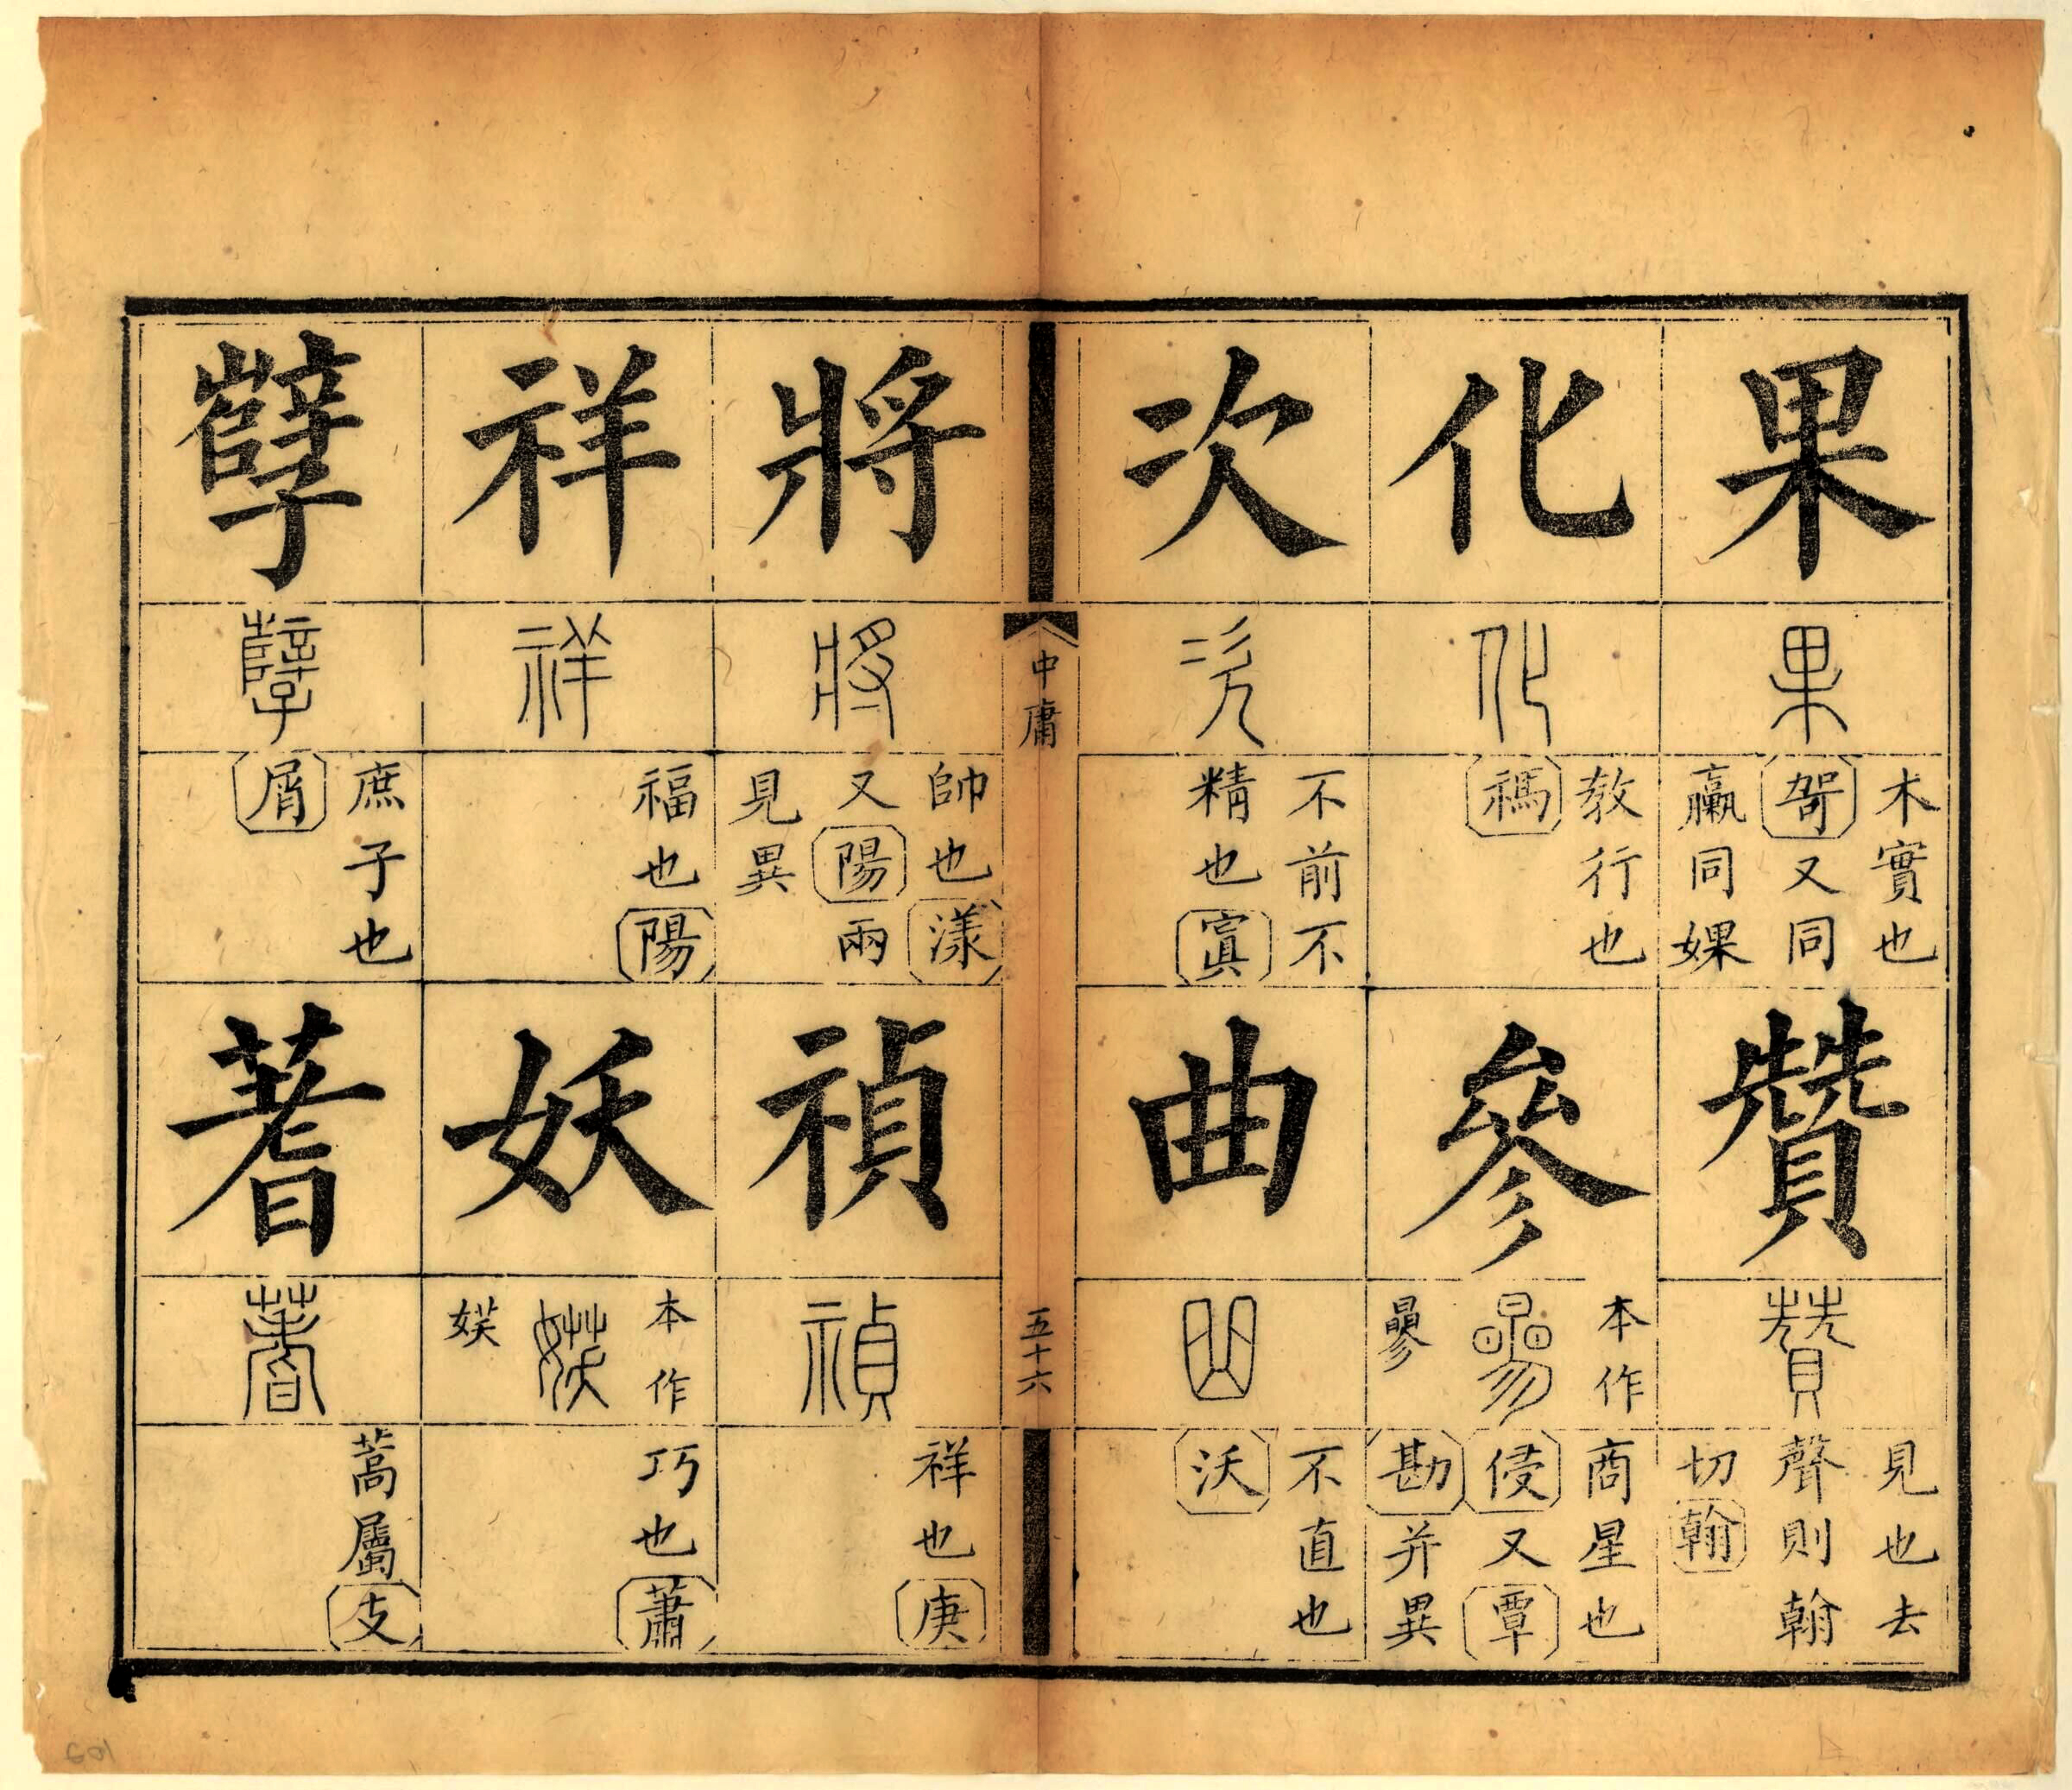 果
果
木實也
哿又同
臝同婐
贊
贊
見也去
聲則翰
切翰
化
化
教行也
禡
參
本作
曑
曑
商星也
侵又覃
勘并異
次
次
不前不
精也寘
曲
曲
不直也
沃
中庸
五十六
將
將
帥也漾
又陽兩
見異
禎
禎
祥也庚
祥
祥
福也陽
妖
本作
媄
娱
巧也蕭
孽
孽
庶子也
屑
蓍
蓍
蒿屬支